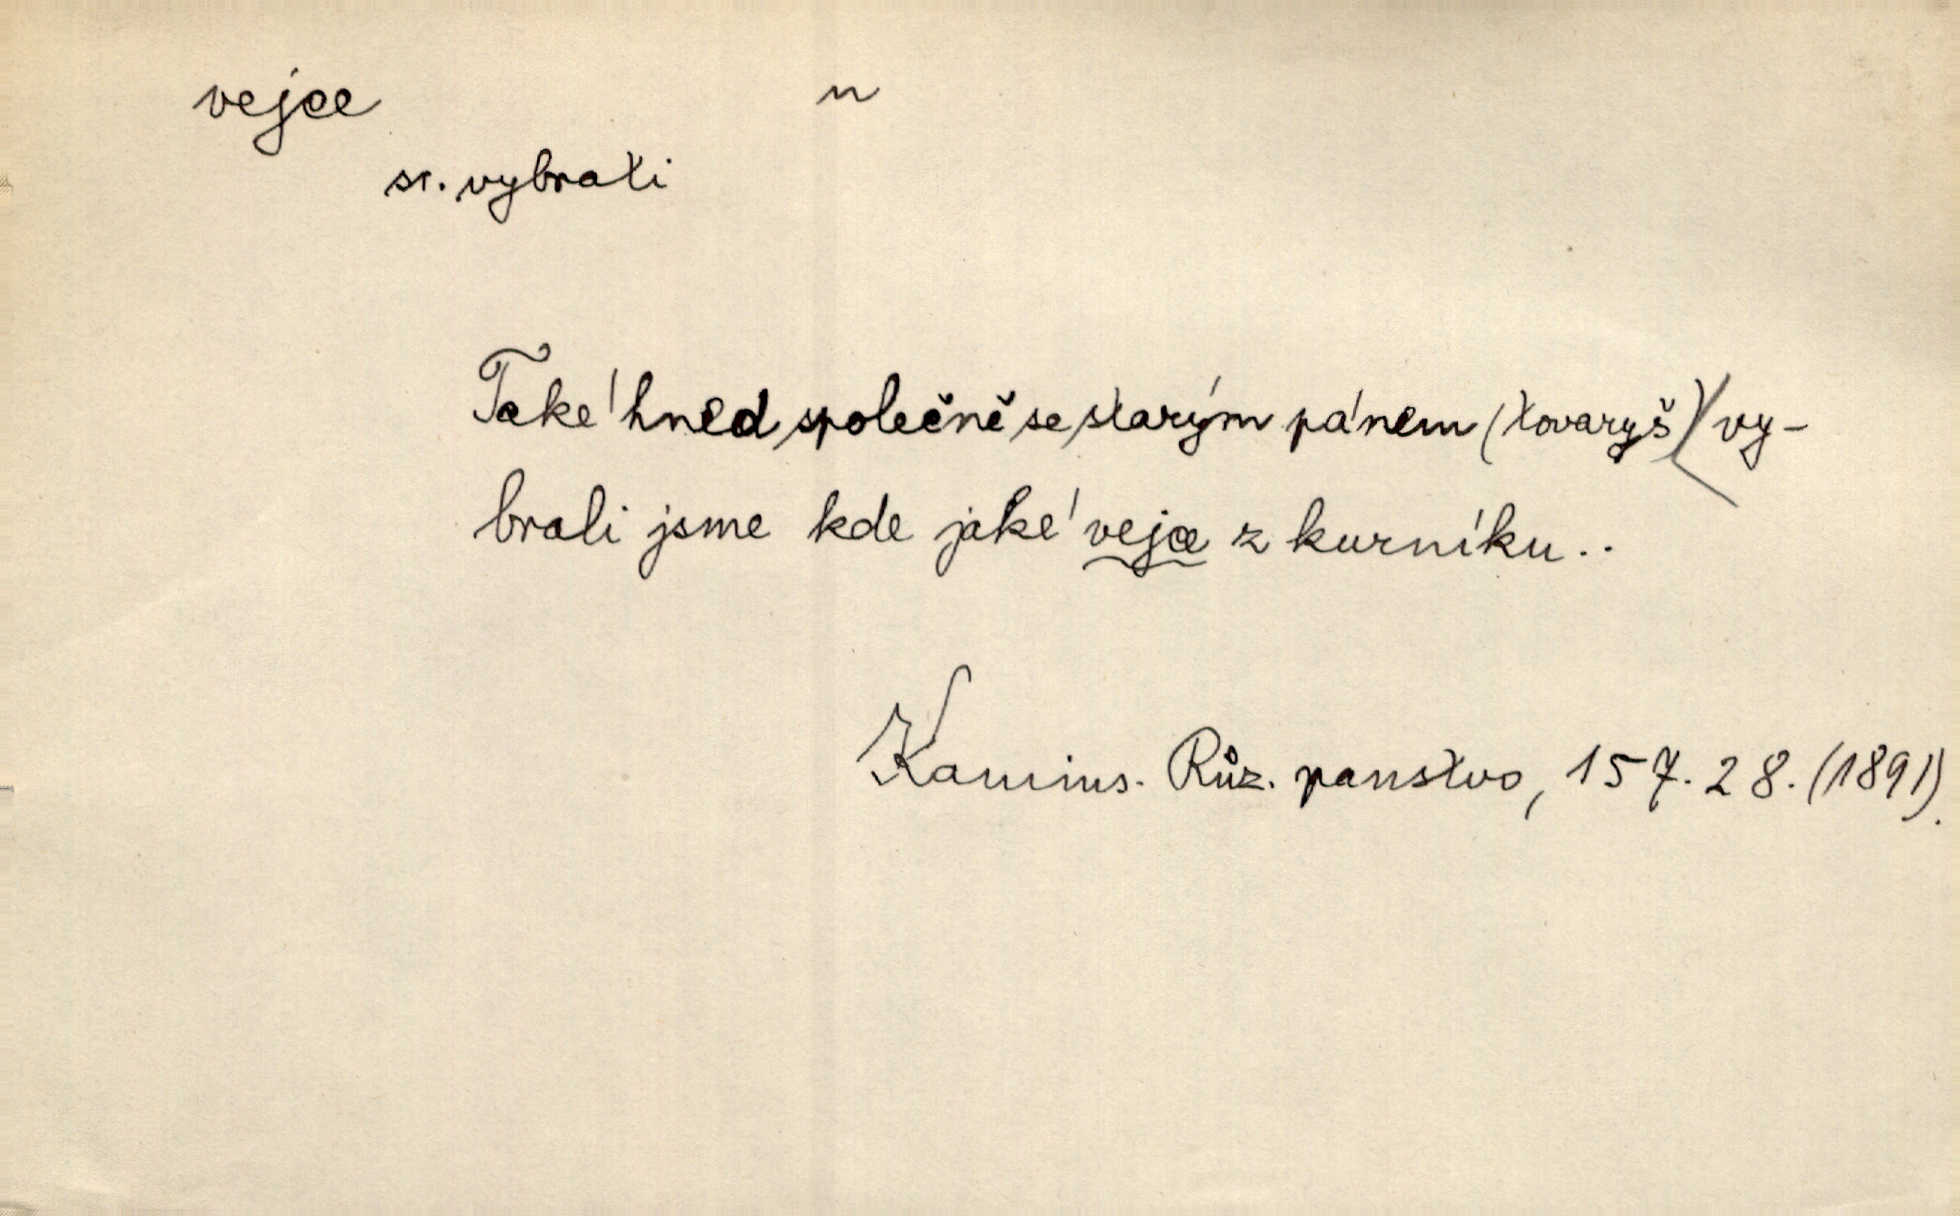 vejce n
sr. vybrati
Také hned společně se starým pánem (tovaryš) vy-
brali jsme kde jaké vejce z kurníku..
Kamins. Růz. panstvo, 157. 28. (1891).